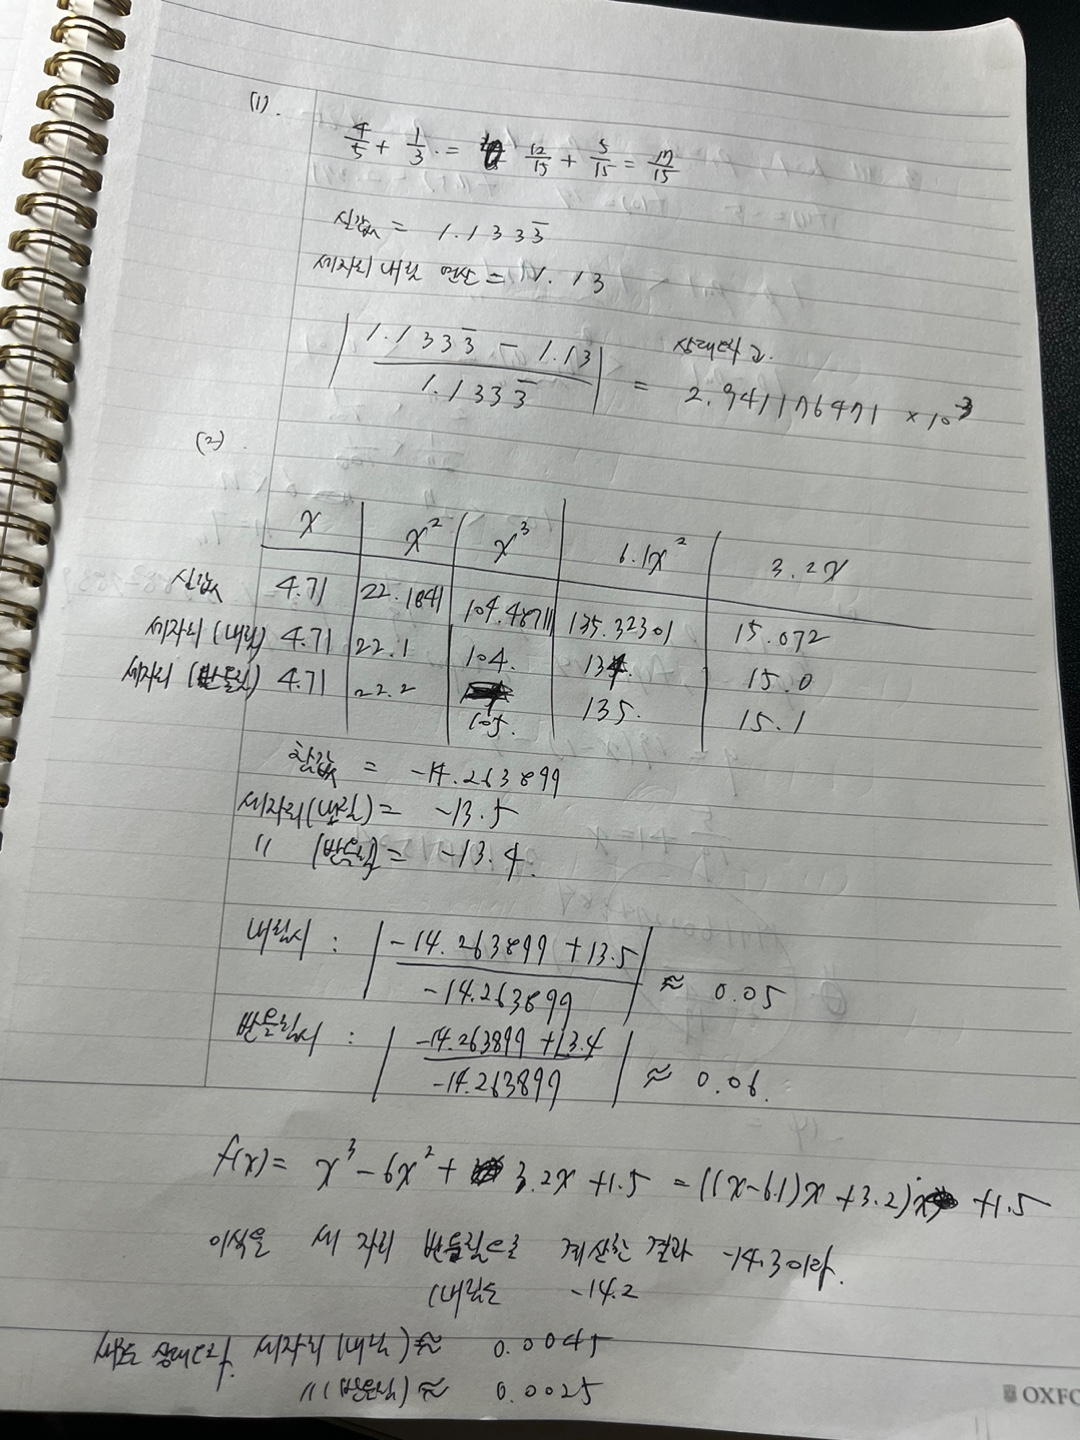 (1).
4/5 + 1/3 . = 12/15 + 5/15 = 17/15
실값 = 1.1333̅
세자리 내림 연산 = 1.13
| (1.1333̅ - 1.13) / 1.1333̅ | = 2.941176471 × 10⁻³
(2)
x x² x³ 6.1x² 3.2x
실값 4.71 22.1841 104.48711 135.32301 15.072
세자리 (내림) 4.71 22.1 104. 134. 15.0
세자리 (반올림) 4.71 22.2 105. 135. 15.1
참값 = -14.263899
세자리(내림) = -13.5
〃 (반올림) = -13.4.
내림시 : | (-14.263899 + 13.5) / -14.263899 | ≈ 0.05
반올림시 : | (-14.263899 + 13.4) / -14.263899 | ≈ 0.06.
f(x) = x³ - 6x² + 3.2x + 1.5 = ((x-6.1)x + 3.2)x + 1.5
이식을 세 자리 반올림으로 계산한 결과 -14.3이라.
(내림은 -14.2
상대오차. 세자리 (내림) ≈ 0.0045
〃 (반올림) ≈ 0.0025
OXFO